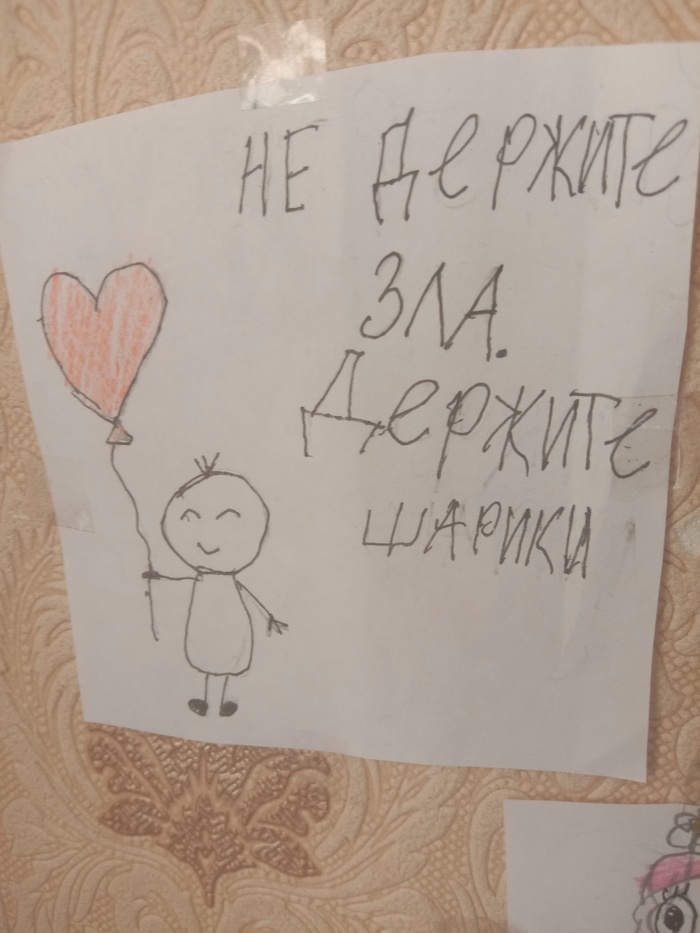 НЕ ДеРЖИТе
ЗЛА.
ДеРЖИТе
ШАРИКИ